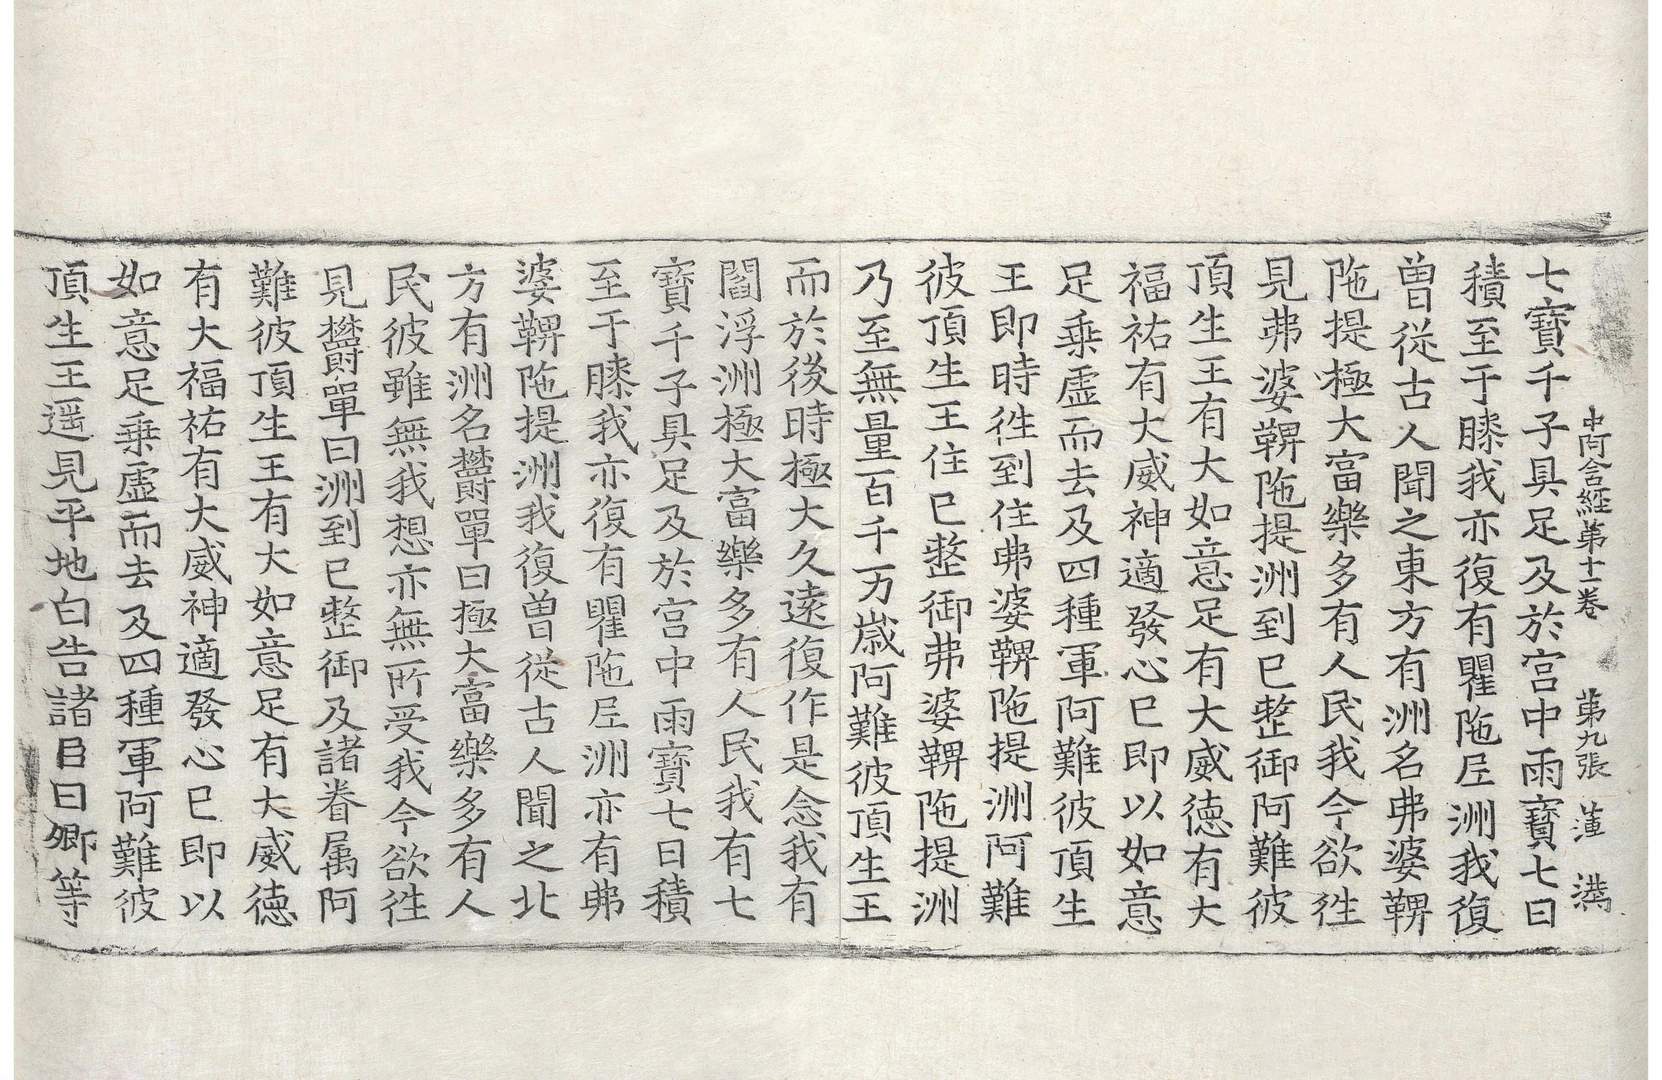 中阿含經第十一卷 第九張 薄
七寶千子具足及於宮中雨寶七日
積至于膝我亦復有瞿陁尼洲我復
曾從古人聞之東方有洲名弗婆鞞
陁提極大富樂多有人民我今欲徃
見弗婆鞞陁提洲到已整御阿難彼
頂生王有大如意足有大威德有大
福祐有大威神適發心已即以如意
足乗虛而去及四種軍阿難彼頂生
王即時徃到住弗婆鞞陁提洲阿難
彼頂生王住已整御弗婆鞞陁提洲
乃至無量百千万歲阿難彼頂生王
而於後時極大久遠復作是念我有
閻浮洲極大富樂多有人民我有七
寶千子具足及於宮中雨寶七日積
至于膝我亦復有瞿陁尼洲亦有弗
婆鞞陁提洲我復曾從古人聞之北
方有洲名欝單曰極大富樂多有人
民彼雖無我想亦無所受我今欲徃
見欝單曰洲到已整御及諸眷属阿
難彼頂生王有大如意足有大威德
有大福祐有大威神適發心已即以
如意足乗虛而去及四種軍阿難彼
頂生王遥見平地白告諸臣曰卿等